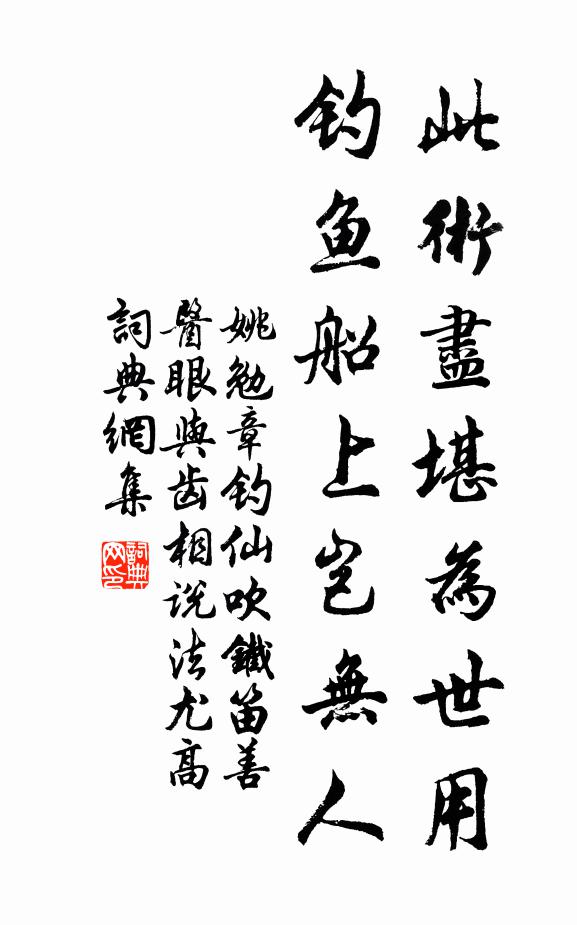 此術盡堪為世用
钓鱼船上岂無人
姚勉章钓仙吹鐵笛善
醫眼與齿相说法尤高
詞典網集
詞典网印